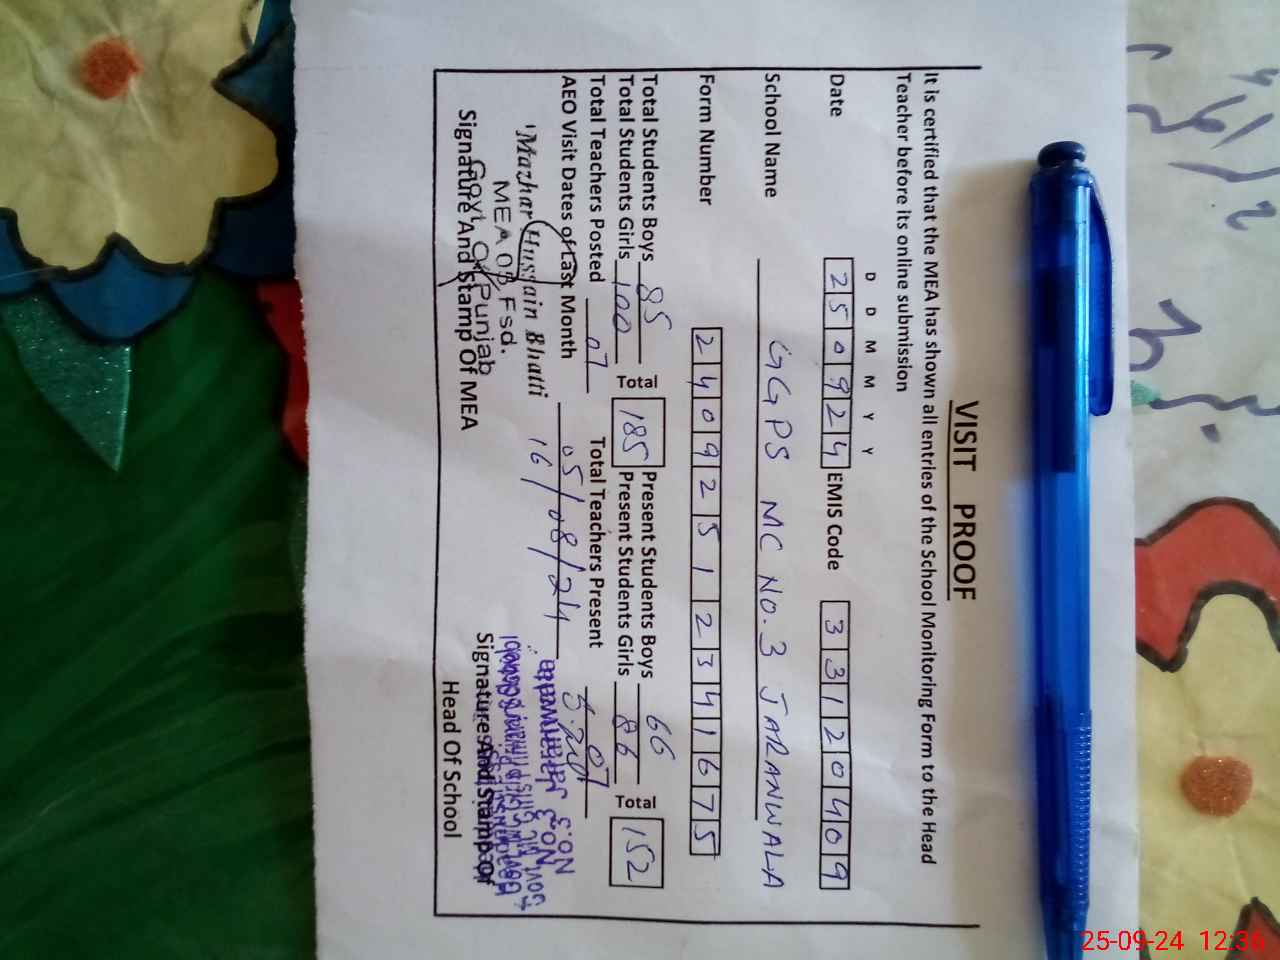 VISIT PROOF
It is certified that the MEA has shown all entries of the School Monitoring Form to the Head
Teacher before its online submission
D D M M Y Y
Date 250924 EMIS Code 33120409
School Name GGPS MC NO.3 JARANWALA
Form Number 24092512341675
Total Students Boys 85 Present Students Boys 66
Total Students Girls 100 Total 185 Present Students Girls 86 Total 152
Total Teachers Posted 07 Total Teachers Present 07
AEO Visit Dates of Last Month 05/08/24
16/
Mazhar Hussain Bhatti
MEA OB Fsd.
Govt. Of Punjab
Signature And Stamp Of MEA
No.3 Jaranwala
Signature And Stamp Of
Head Of School
25-09-24 12:36